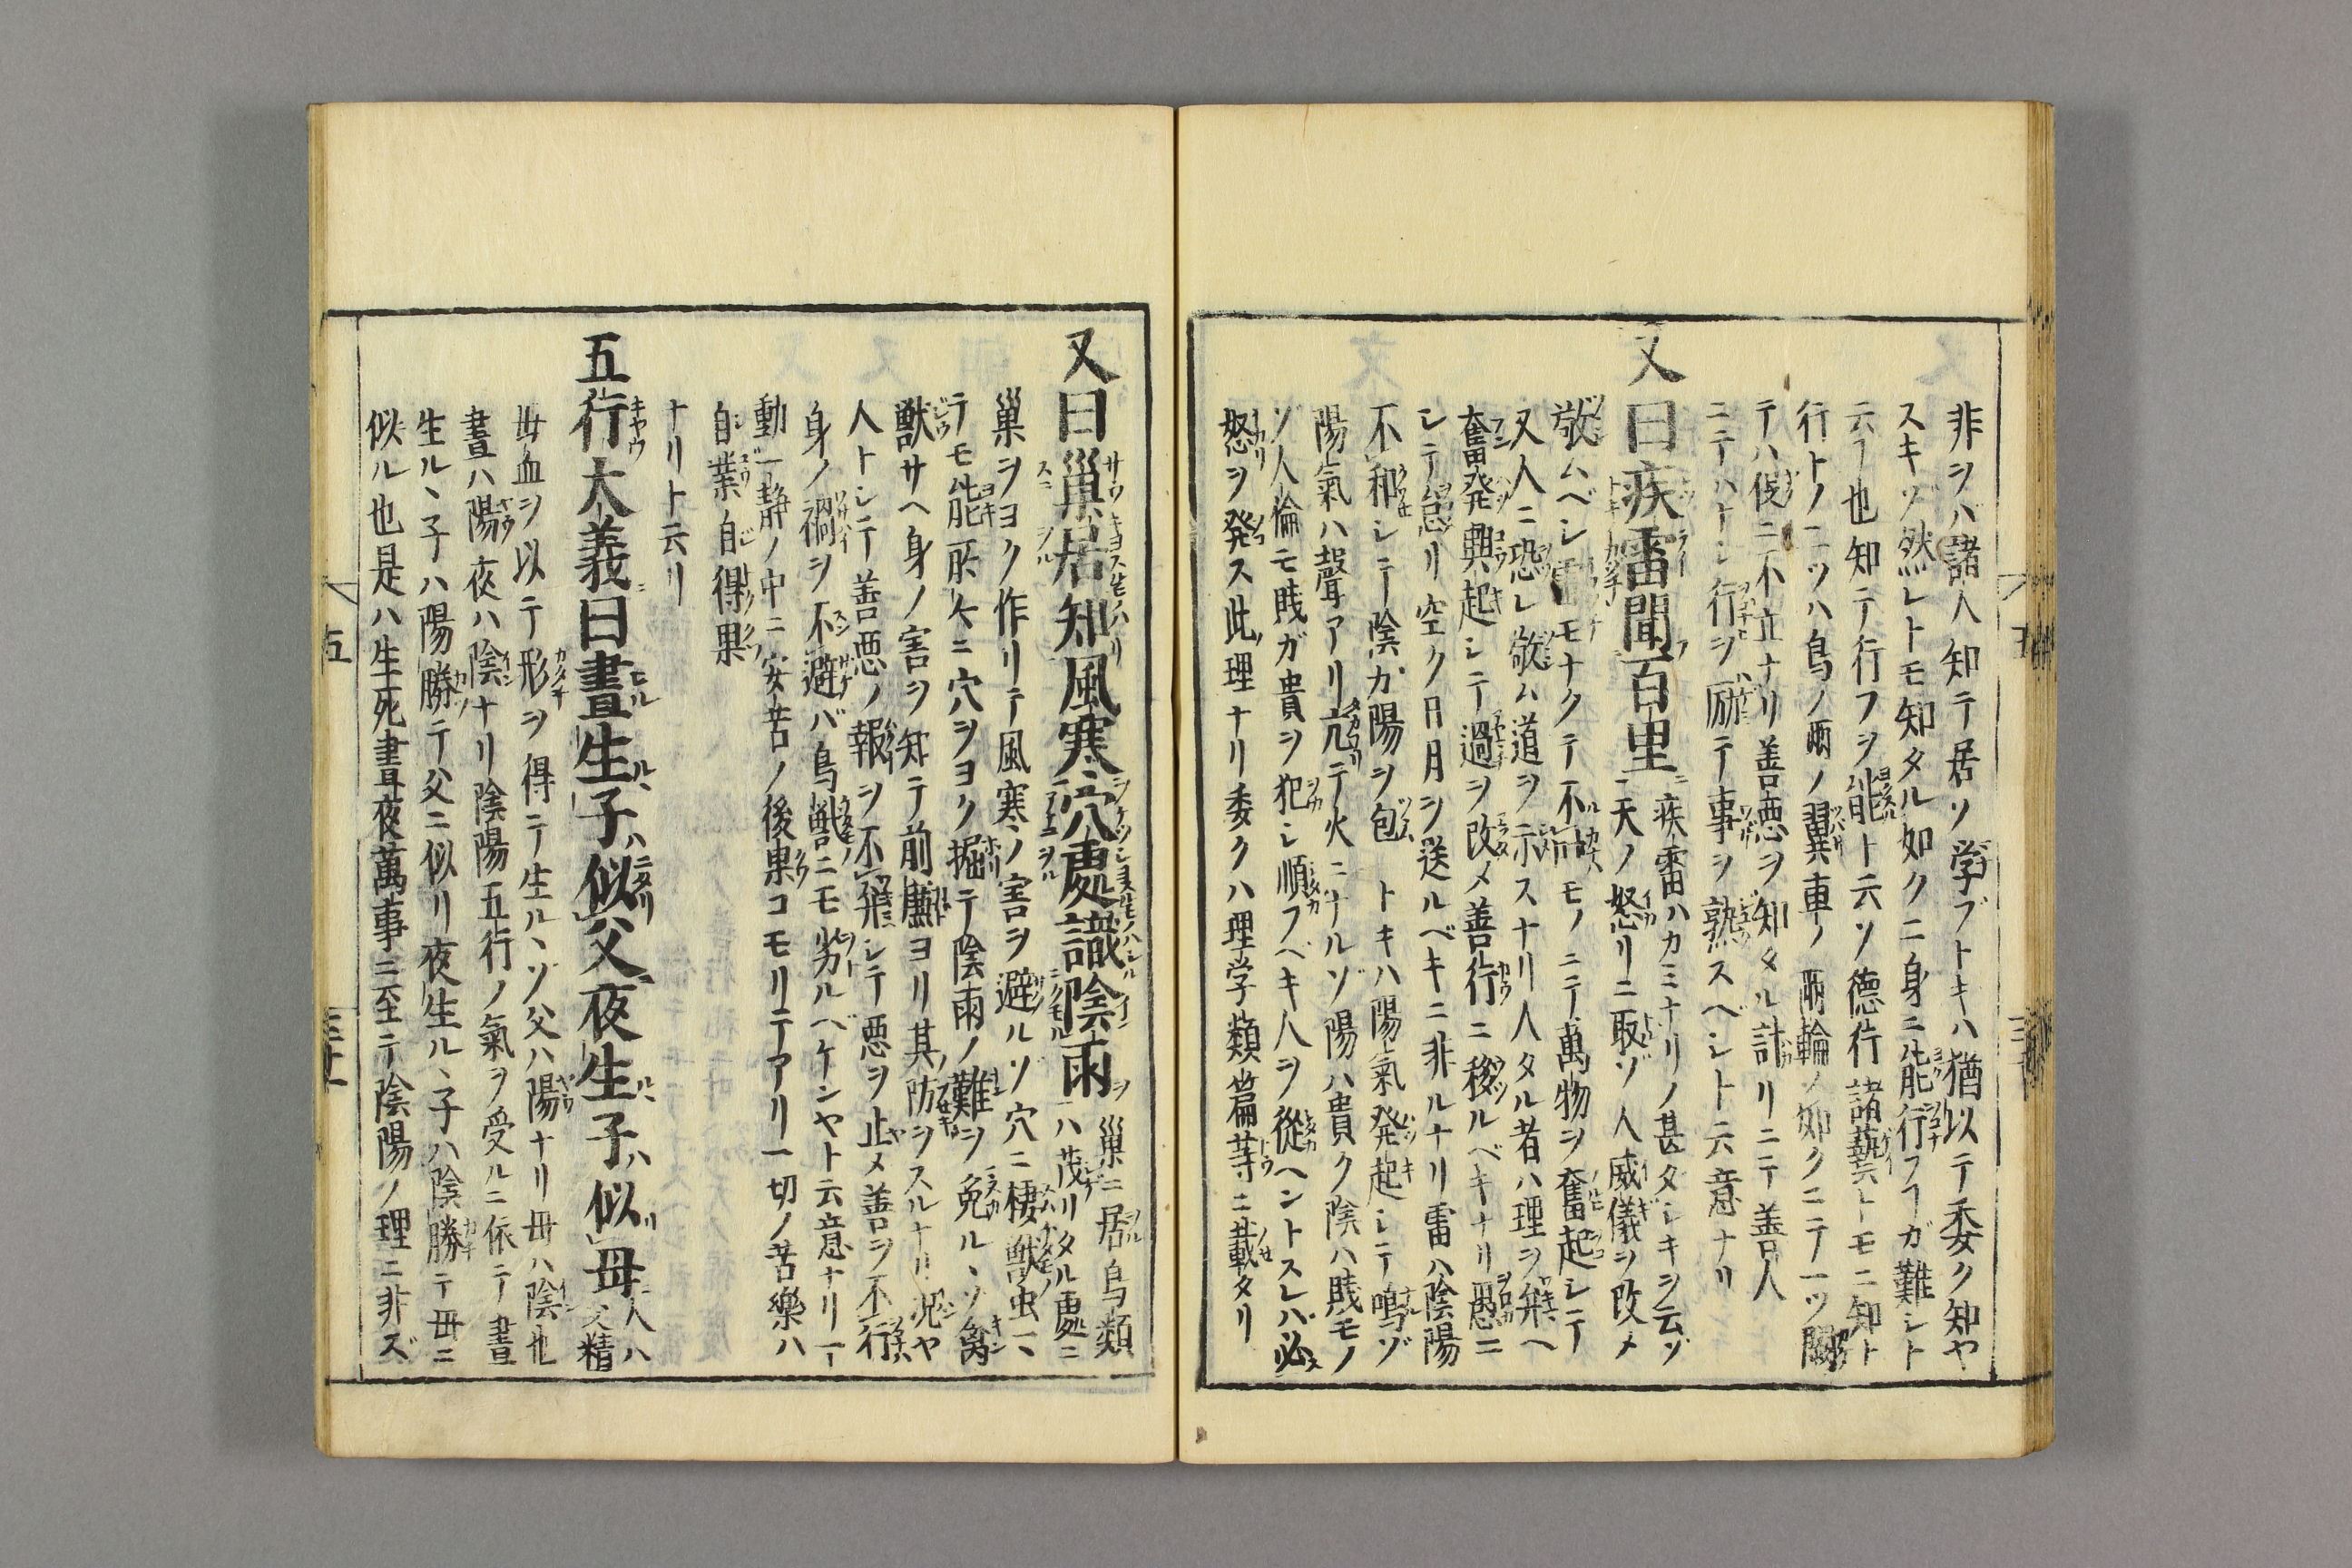 非ヲハ諸人知テ居ソ学ブトキハ猶以テ委ク知ヤ
スキゾ然レトモ知タル如クニ身ニ能行フヿガ難シト
云ヿ也知テ行フヲ能ト云ソ徳行諸藝トモニ知ト
行トノ二ツハ鳥ノ両ノ翼車ノ両輪ノ如クニテ一ツ闕
テハ俣ニ不立ナリ善悪ヲ知タル計リニテ善人
ニテハナシ行ヲ励テ事ヲ熟スベシト云意ナリ
又曰疾雷聞百里 疾雷ハカミナリノ甚タシキヲ云ゾ
天ノ怒リニ取ゾ人威儀ヲ改メ
敬ムベシ モナクテ不 モノニテ萬物ヲ奮起シテ
又人ニ恐レ敬ム道ヲ示スナリ人タル者ハ理ヲ辨ヘ
奮発興起シテ過ヲ改メ善行ニ移ルベキナリ愚ニ
シテ怠リ空ク日月ヲ送ルベキニ非ルナリ雷ハ陰陽
不和シテ陰カ陽ヲ包 トキハ陽氣発起シテ鳴ゾ
陽氣ハ聲アリ亢テ火ニナルゾ陽ハ貴ク陰ハ賎モノ
ソ人倫モ賎ガ貴ヲ犯シ順フベキ人ヲ從ヘントスレバ必
怒ヲ発ス此理ナリ委クハ理学類篇等ニ載タリ
又曰巣居知風寒穴處識陰雨 巣ニ居鳥類
ハ茂リタル處ニ
巣ヲヨク作リテ風寒ノ害ヲ避ルゾ穴ニ棲獣虫ハ
テモ能所々ニ穴ヲヨク掘テ陰雨ノ難ヲ免ルヽソ禽
獣サヘ身ノ害ヲ知テ前廉ヨリ其防ヲスルナリ况ヤ
人トシテ善悪ノ報ヲ不辨シテ悪ヲ止メ善ヲ不行
身ノ禍ヲ不避バ鳥獣ニモ劣ルベケンヤト云意ナリ一
動一静ノ中ニ安苦ノ後果コモリテアリ一切ノ苦樂ハ
自業自得果
ナリト云リ
五行大義曰晝生子似父夜生子似母 人ハ
父精
母血ヲ以テ形ヲ得テ生ルヽソ父ハ陽ナリ母ハ陰也
晝ハ陽夜ハ陰ナリ陰陽五行ノ氣ヲ受ルニ依テ晝
生ルヽ子ハ陽勝テ父ニ似リ夜生ルヽ子ハ陰勝テ母ニ
似ル也是ハ生死晝夜萬事ニ至テ陰陽ノ理ニ非ズ
五